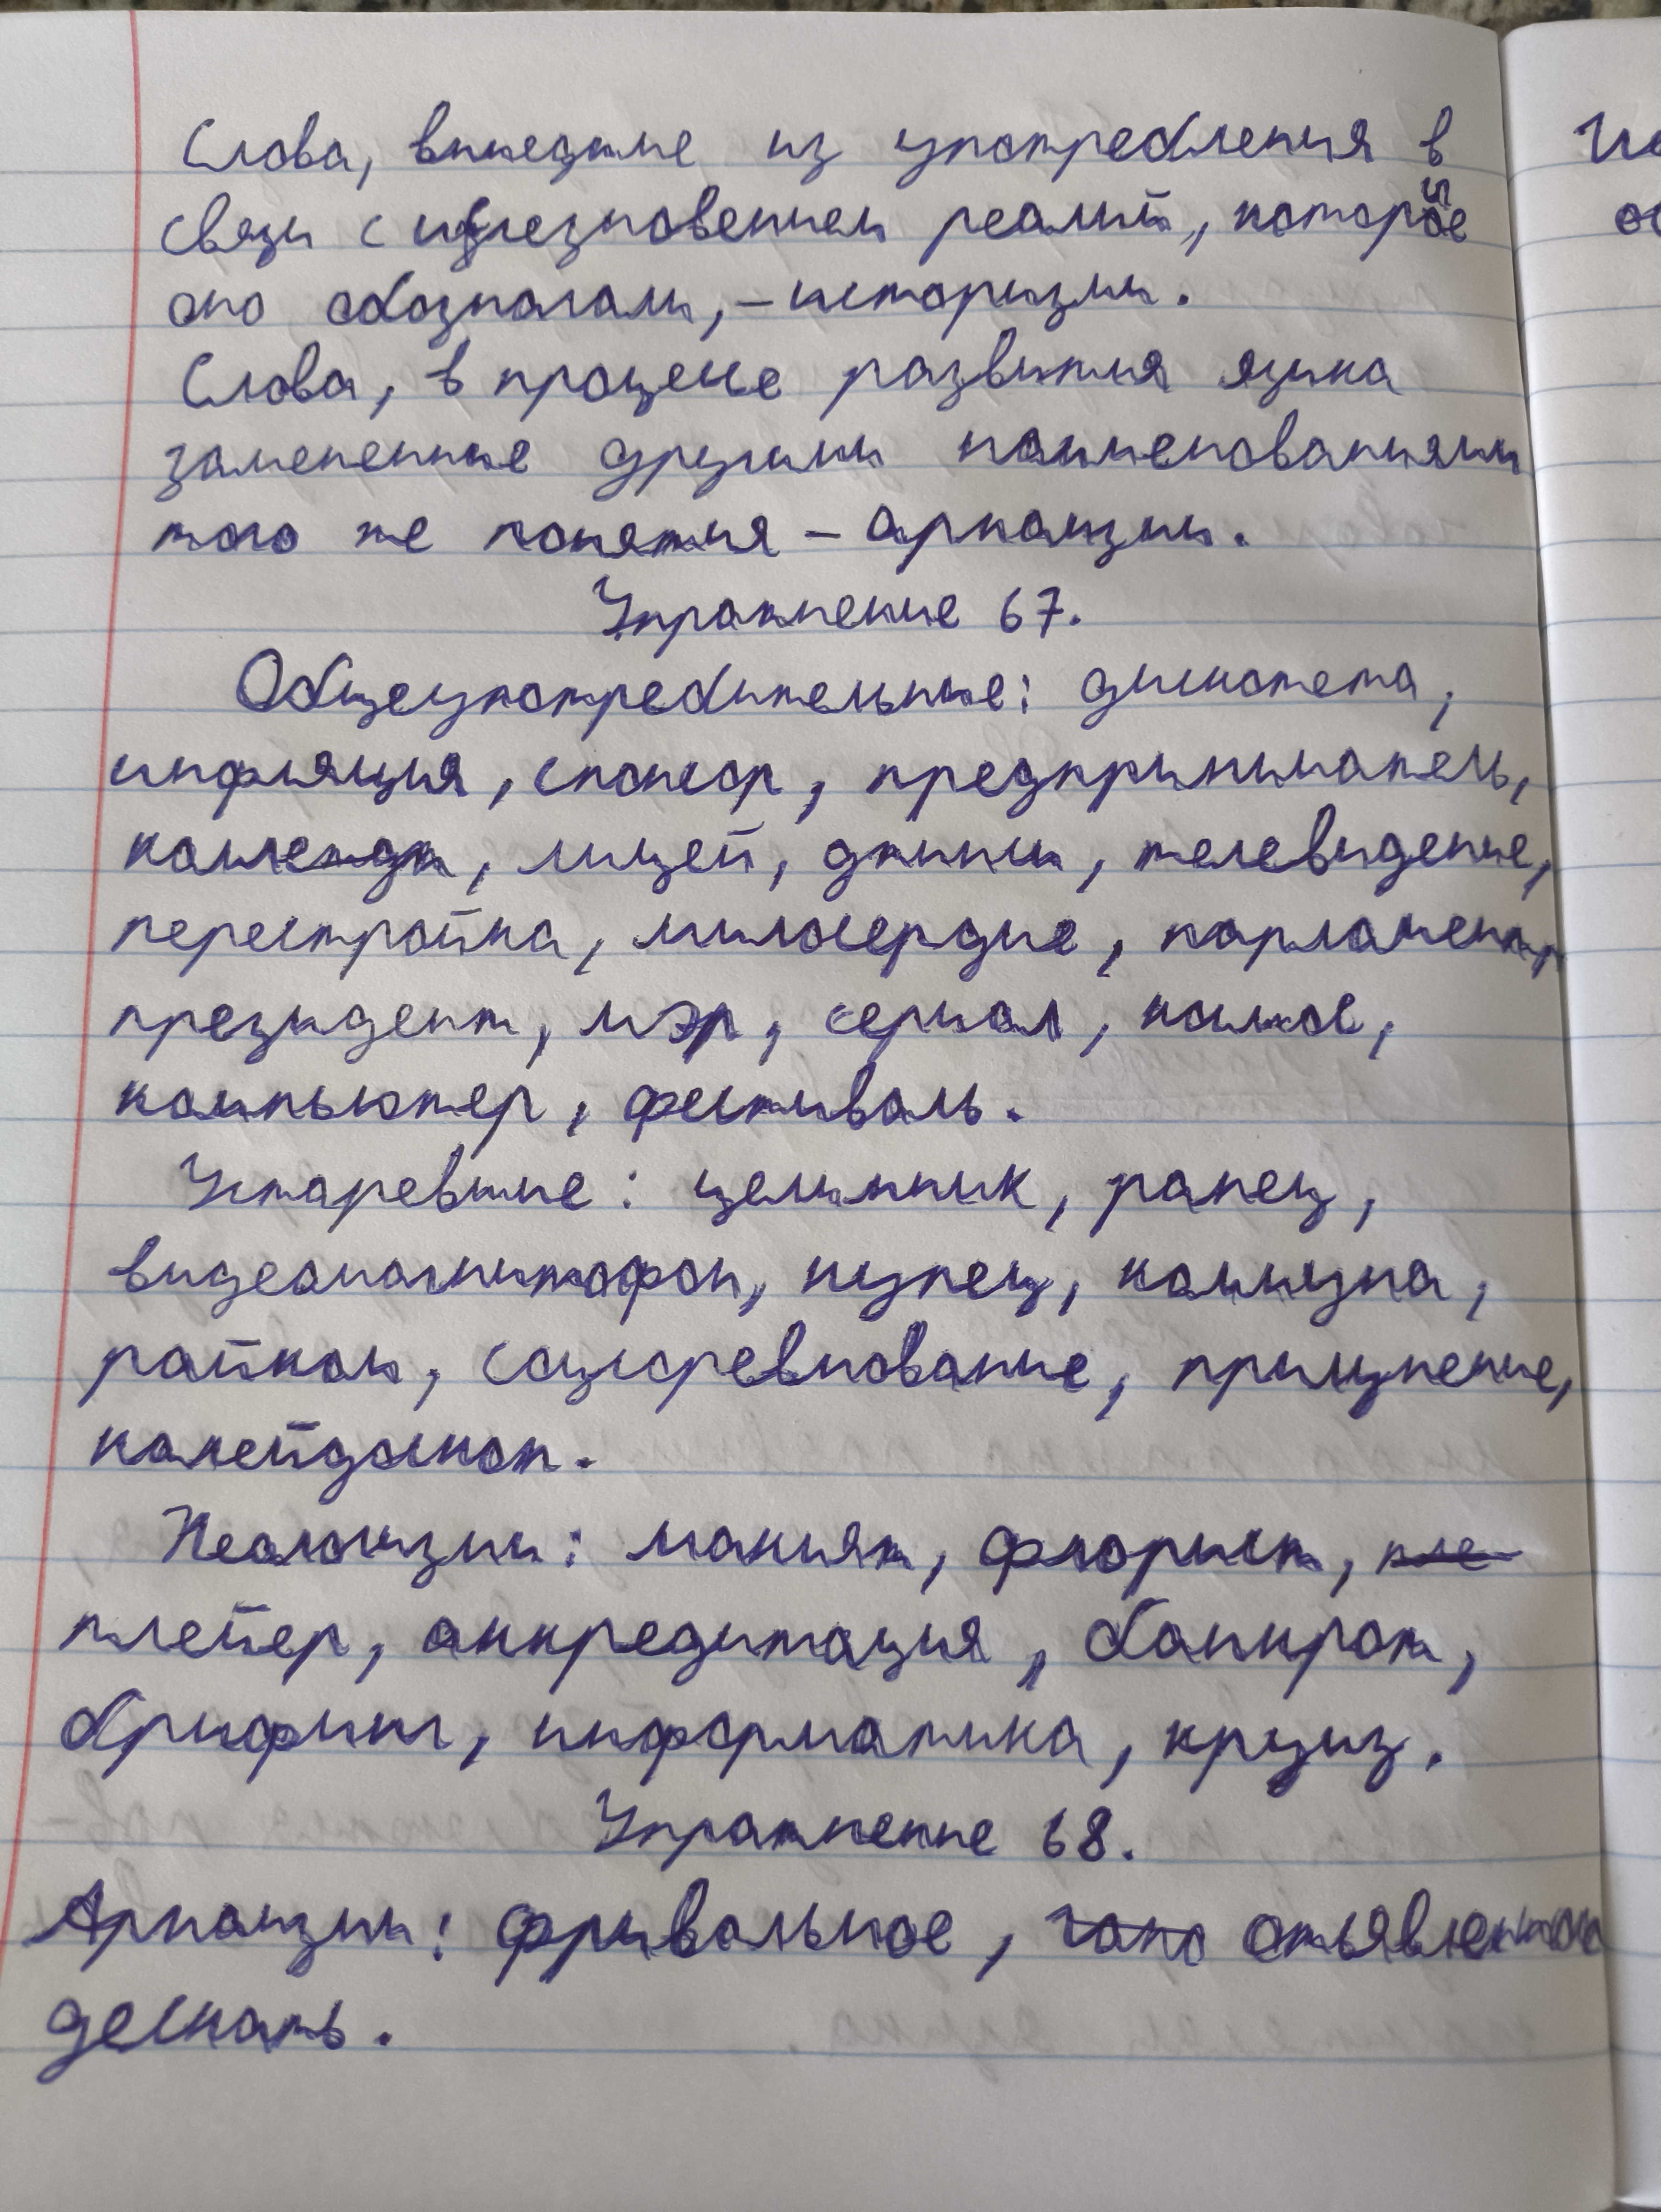 Слова, вышедшие из употребления в
связи с исчезновением реалий, которые
оно обозначали, – историзмы.
Слова, в процессе развития языка
замененные другими наименованиями
того же понятия – архаизмы.
Упражнение 67.
Общеупотребительные: дискотека,
инфляция, спонсор, предприниматель,
колледж, лицей, джинсы, телевидение,
перестройка, милосердие, парламент,
президент, мэр, сериал, космос,
компьютер, фестиваль.
Устаревшие: целинник, ранец,
видеомагнитофон, купец, коммуна,
райком, соцсоревнование, приизнение,
калейдоскоп.
Неологизмы: макияж, флорист,
плейер, аккредитация, банкрот,
брифинг, информатика, круиз.
Упражнение 68.
Архаизмы: фривольное, отъявленного
дескать.